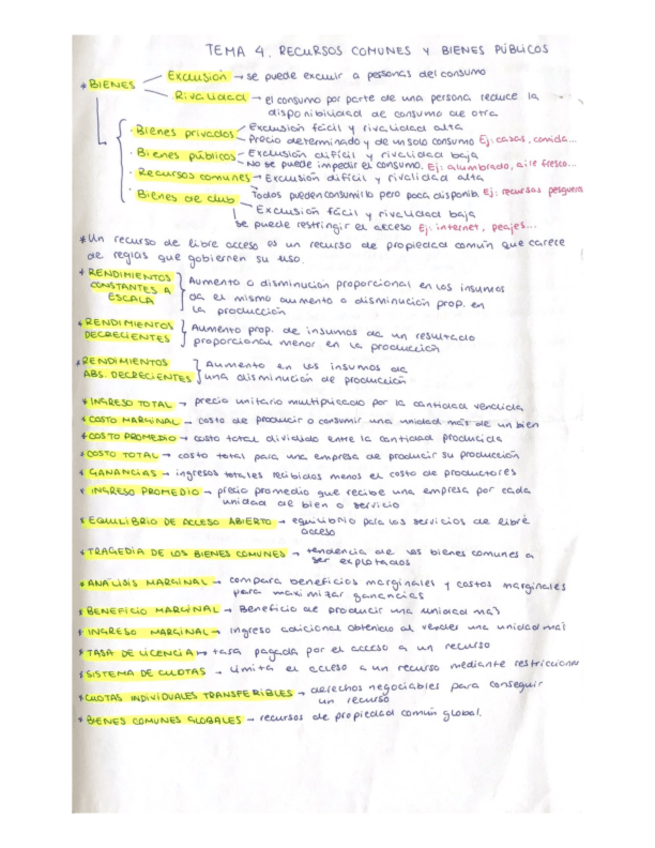 TEMA 4. RECURSOS COMUNES Y BIENES PÚBLICOS
* BIENES
Exclusión → se puede excluir a personas del consumo
Rivalidad → el consumo por parte de una persona reduce la
disponibilidad de consumo de otra
· Bienes privados
Exclusión fácil y rivalidad alta
Precio determinado y de un solo consumo Ej: casas, comida...
· Bienes públicos
Exclusión difícil y rivalidad baja
No se puede impedir el consumo. Ej: alumbrado, aire fresco...
· Recursos comunes → Exclusión difícil y rivalidad alta
Todos pueden consumirlo pero poca disponib. Ej: recursos pesquera
· Bienes de club
Exclusión fácil y rivalidad baja
se puede restringir el acceso Ej: internet, peajes...
* Un recurso de libre acceso es un recurso de propiedad común que carece
de reglas que gobiernen su uso.
* RENDIMIENTOS CONSTANTES A ESCALA
Aumento o disminución proporcional en los insumos
da el mismo aumento o disminución prop. en
la producción
* RENDIMIENTOS DECRECIENTES
Aumento prop. de insumos da un resultado
proporcional menor en la producción
* RENDIMIENTOS ABS. DECRECIENTES
Aumento en los insumos da
una disminución de producción
* INGRESO TOTAL → precio unitario multiplicado por la cantidad vendida
* COSTO MARGINAL → costo de producir o consumir una unidad más de un bien
* COSTO PROMEDIO → costo total dividido entre la cantidad producida
* COSTO TOTAL → costo total para una empresa de producir su producción
* GANANCIAS → ingresos totales recibidos menos el costo de productores
* INGRESO PROMEDIO → precio promedio que recibe una empresa por cada
unidad de bien o servicio
* EQUILIBRIO DE ACCESO ABIERTO → equilibrio para los servicios de libre
acceso
* TRAGEDIA DE LOS BIENES COMUNES → tendencia de los bienes comunes a
ser explotados
* ANÁLISIS MARGINAL → compara beneficios marginales y costos marginales
para maximizar ganancias
* BENEFICIO MARGINAL → Beneficio de producir una unidad más
* INGRESO MARGINAL → ingreso adicional obtenido al vender una unidad más
* TASA DE LICENCIA → tasa pagada por el acceso a un recurso
* SISTEMA DE CUOTAS → Limita el acceso a un recurso mediante restriccione
* CUOTAS INDIVIDUALES TRANSFERIBLES → derechos negociables para conseguir
un recurso
* BIENES COMUNES GLOBALES → recursos de propiedad común global.